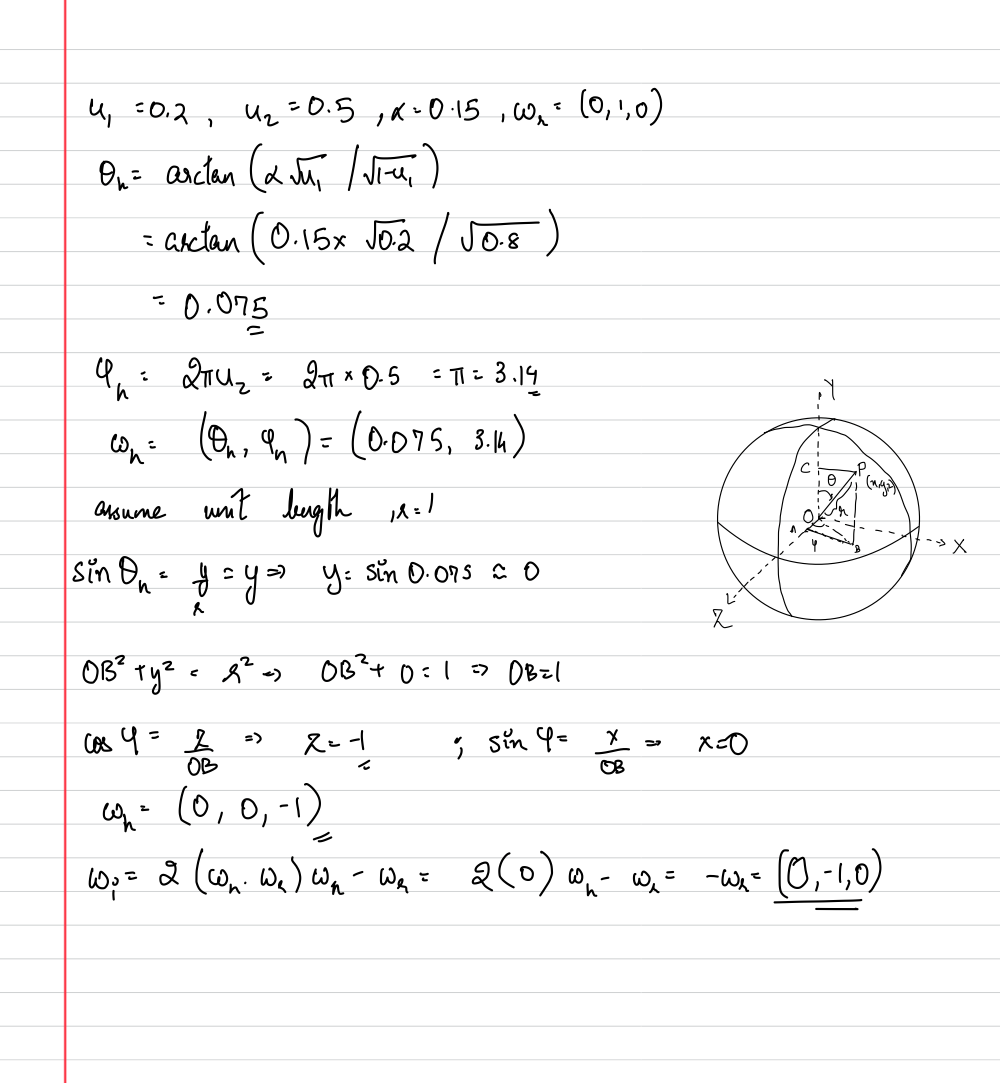 u₁ = 0.2 , u₂ = 0.5 , α = 0.15 , ωᵣ = (0,1,0)
θₕ = arctan (α √u₁ / √1-u₁ )
= arctan ( 0.15x √0.2 / √0.8 )
= 0.075
φₕ = 2πu₂ = 2π × 0.5 = π = 3.14
ωₕ = (θₕ, φₕ) = (0.075, 3.14)
assume unit length , r=1
sin θₕ = y/r = y => y = sin 0.075 ≈ 0
OB² + y² = r² => OB² + 0 = 1 => OB=1
cos φ = z/OB => z = -1 ; sin φ = x/OB => x=0
ωₕ = (0, 0, -1)
ωᵢ = 2 (ωₕ. ωᵣ) ωₕ - ωᵣ = 2(0) ωₕ - ωᵣ = -ωᵣ = (0,-1,0)
Y
C P
θ (x,y,z)
O r
A φ B
X
Z